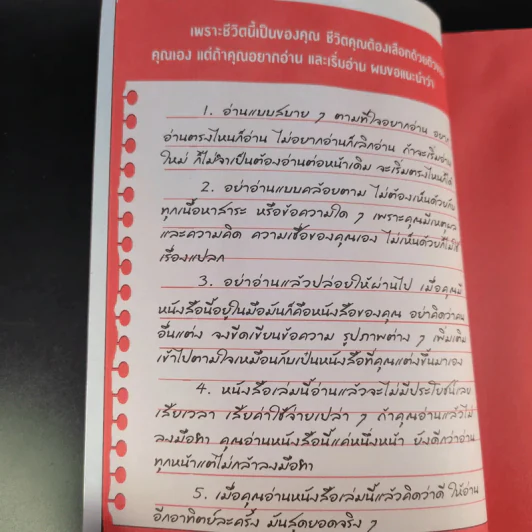 เพราะชีวิตนี้เป็นของคุณ ชีวิตคุณต้องเลือกด้วยตัว
คุณเอง แต่ถ้าคุณอยากอ่าน และเริ่มอ่าน ผมขอแนะนำว่า
1. อ่านแบบสบาย ๆ ตามที่ใจอยากอ่าน อยาก
อ่านตรงไหนก็อ่าน ไม่อยากอ่านก็เลิกอ่าน ถ้าจะเริ่มอ่าน
ใหม่ ก็ไม่จำเป็นต้องอ่านต่อหน้าเดิม จะเริ่มตรงไหนก็ได้
2. อย่าอ่านแบบคล้อยตาม ไม่ต้องเห็นด้วยกับ
ทุกเนื้อหาสาระ หรือข้อความใด ๆ เพราะคุณมีเหตุผล
และความคิด ความเชื่อของคุณเอง ไม่เห็นด้วยก็ไม่ใช่
เรื่องแปลก
3. อย่าอ่านแล้วปล่อยให้ผ่านไป เมื่อคุณมี
หนังสือนี้อยู่ในมือมันก็คือหนังสือของคุณ อย่าคิดว่าคน
อื่นแต่ง จงขีดเขียนข้อความ รูปภาพต่าง ๆ เพิ่มเติม
เข้าไปตามใจเหมือนกับเป็นหนังสือที่คุณแต่งขึ้นมาเอง
4. หนังสือเล่มนี้อ่านแล้วจะไม่มีประโยชน์เลย
เสียเวลา เสียค่าใช้จ่ายเปล่า ๆ ถ้าคุณอ่านแล้วไม่
ลงมือทำ คุณอ่านหนังสือนี้แค่หนึ่งหน้า ยังดีกว่าอ่าน
ทุกหน้าแต่ไม่กล้าลงมือทำ
5. เมื่อคุณอ่านหนังสือเล่มนี้แล้วคิดว่าดี ให้อ่าน
อีกอาทิตย์ละครั้ง มันสุดยอดจริง ๆ